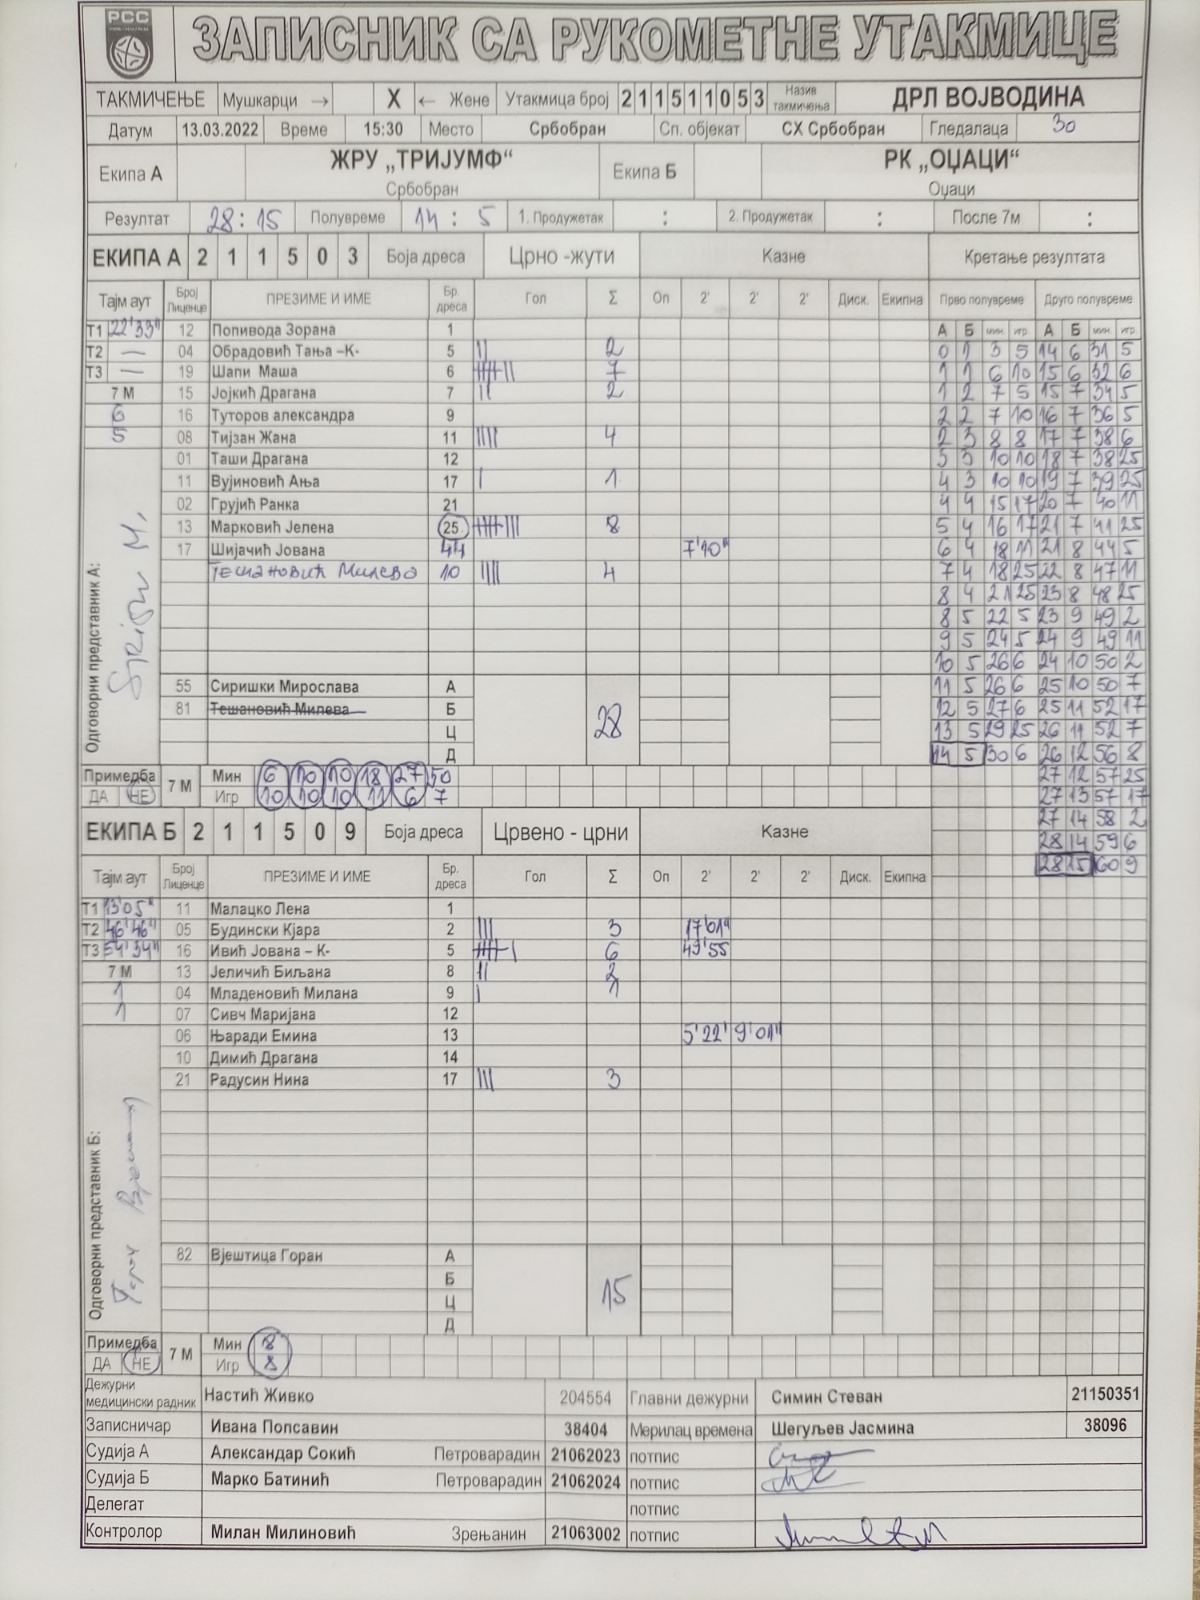 РСС
ЗАПИСНИК СА РУКОМЕТНЕ УТАКМИЦЕ
ТАКМИЧЕЊЕ Мушкарци → X ← Жене Утакмица број 211511053 Назив такмичења ДРЛ ВОЈВОДИНА
Датум 13.03.2022 Време 15:30 Место Србобран Сп. објекат СХ Србобран Гледалаца 30
Екипа А ЖРУ „ТРИЈУМФ“ Србобран Екипа Б РК „ОЏАЦИ“ Оџаци
Резултат 28:15 Полувреме 14 : 5 1. Продужетак : 2. Продужетак : После 7м :
ЕКИПА А 2 1 1 5 0 3 Боја дреса Црно -жути Казне Кретање резултата
Тајм аут Број Лиценце ПРЕЗИМЕ И ИМЕ Бр. дреса Гол Σ Оп 2' 2' 2' Диск. Екипна Прво полувреме Друго полувреме
Т1 22'33" 12 Попивода Зорана 1 А Б мин. игр. А Б мин. игр.
Т2 — 04 Обрадовић Тања –К- 5 || 2 0 1 3 5 14 6 31 5
Т3 — 19 Шапи Маша 6 7 1 1 6 10 15 6 32 6
7 М 15 Јојкић Драгана 7 || 2 1 2 7 5 15 7 34 5
6 16 Туторов александра 9 2 2 7 10 16 7 36 5
5 08 Тијзан Жана 11 |||| 4 2 3 8 8 17 7 38 6
01 Таши Драгана 12 3 3 10 10 18 7 38 25
11 Вујиновић Ања 17 | 1 4 3 10 10 19 7 39 25
02 Грујић Ранка 21 4 4 15 17 20 7 40 11
13 Марковић Јелена 25 8 5 4 16 17 21 7 41 25
17 Шијачић Јована 44 7'10" 6 4 18 11 21 8 44 5
Тешановић Милева 10 |||| 4 7 4 18 25 22 8 47 11
8 4 21 25 23 8 48 25
8 5 22 5 23 9 49 2
9 5 24 5 24 9 49 11
10 5 26 6 24 10 50 2
55 Сиришки Мирослава А 11 5 26 6 25 10 50 7
81 Тешановић Милева Б 28 12 5 27 6 25 11 52 17
Ц 13 5 29 25 26 11 52 7
Д 14 5 30 6 26 12 56 8
Одговорни представник А:
Примедба ДА НЕ 7 М Мин 6 10 10 18 27 50 27 12 57 25
Игр 10 10 10 11 6 7 27 13 57 17
27 14 58 2
ЕКИПА Б 2 1 1 5 0 9 Боја дреса Црвено - црни Казне 28 14 59 6
28 15 60 9
Тајм аут Број Лиценце ПРЕЗИМЕ И ИМЕ Бр. дреса Гол Σ Оп 2' 2' 2' Диск. Екипна
Т1 13'05" 11 Малацко Лена 1
Т2 46'46" 05 Будински Кјара 2 ||| 3 17'01"
Т3 54'34" 16 Ивић Јована – К- 5 6 49'55
7 М 13 Јеличић Биљана 8 || 2
1 04 Младеновић Милана 9 | 1
1 07 Сивч Маријана 12
06 Њаради Емина 13 5'22' 9'01"
10 Димић Драгана 14
21 Радусин Нина 17 ||| 3
Одговорни представник Б:
82 Вјештица Горан А
Б
Ц 15
Д
Примедба ДА НЕ 7 М Мин 8
Игр 8
Дежурни медицински радник Настић Живко 204554 Главни дежурни Симин Стеван 21150351
Записничар Ивана Попсавин 38404 Мерилац времена Шегуљев Јасмина 38096
Судија А Александар Сокић Петроварадин 21062023 потпис
Судија Б Марко Батинић Петроварадин 21062024 потпис
Делегат потпис
Контролор Милан Милиновић Зрењанин 21063002 потпис